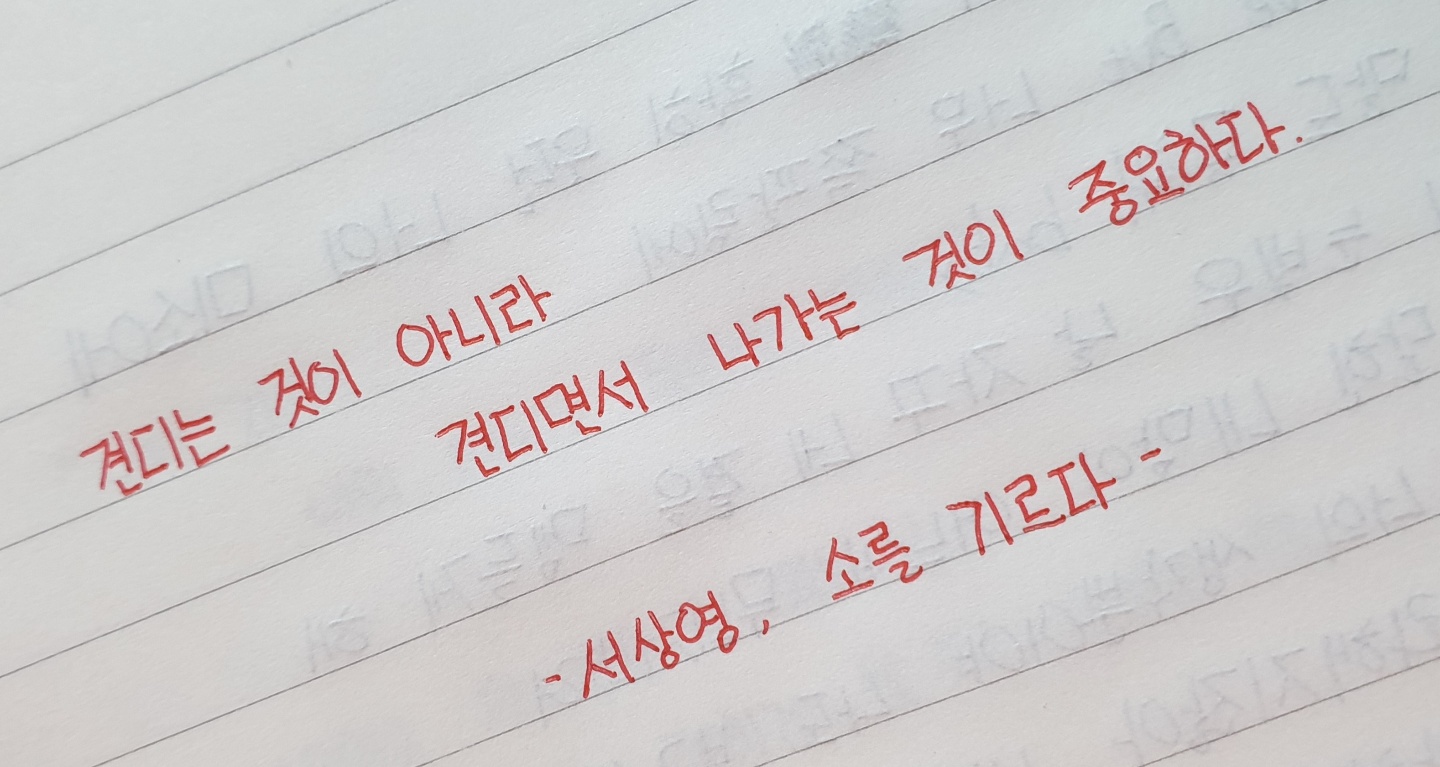 견디는 것이 아니라
견디면서 나가는 것이 중요하다.
- 서상영, 소를 기르다 -